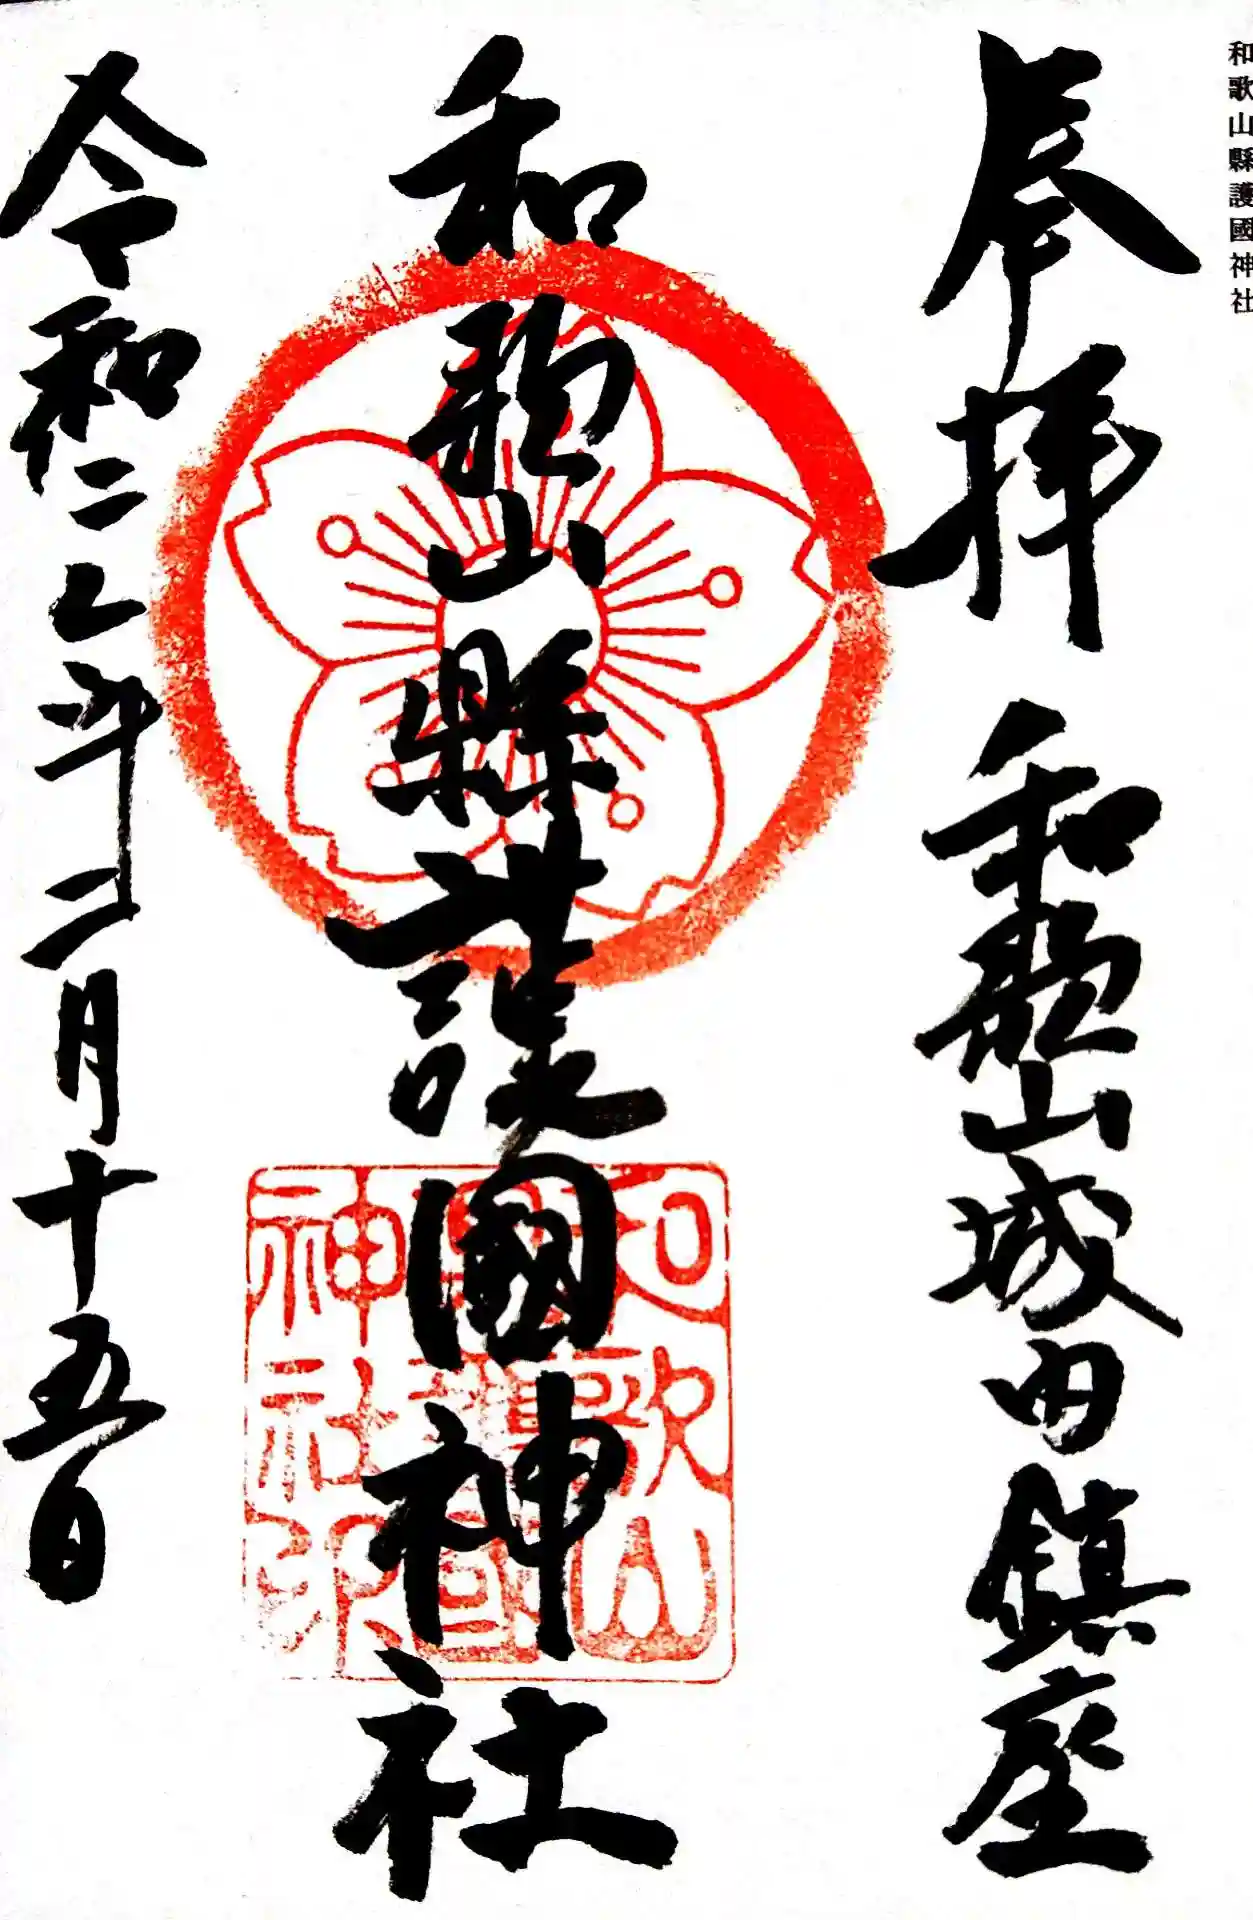 和歌山縣護國神社
奉拝
和歌山城内鎮座
和歌山縣護國神社
和歌山
縣護國
神社印
令和
年二月十五日